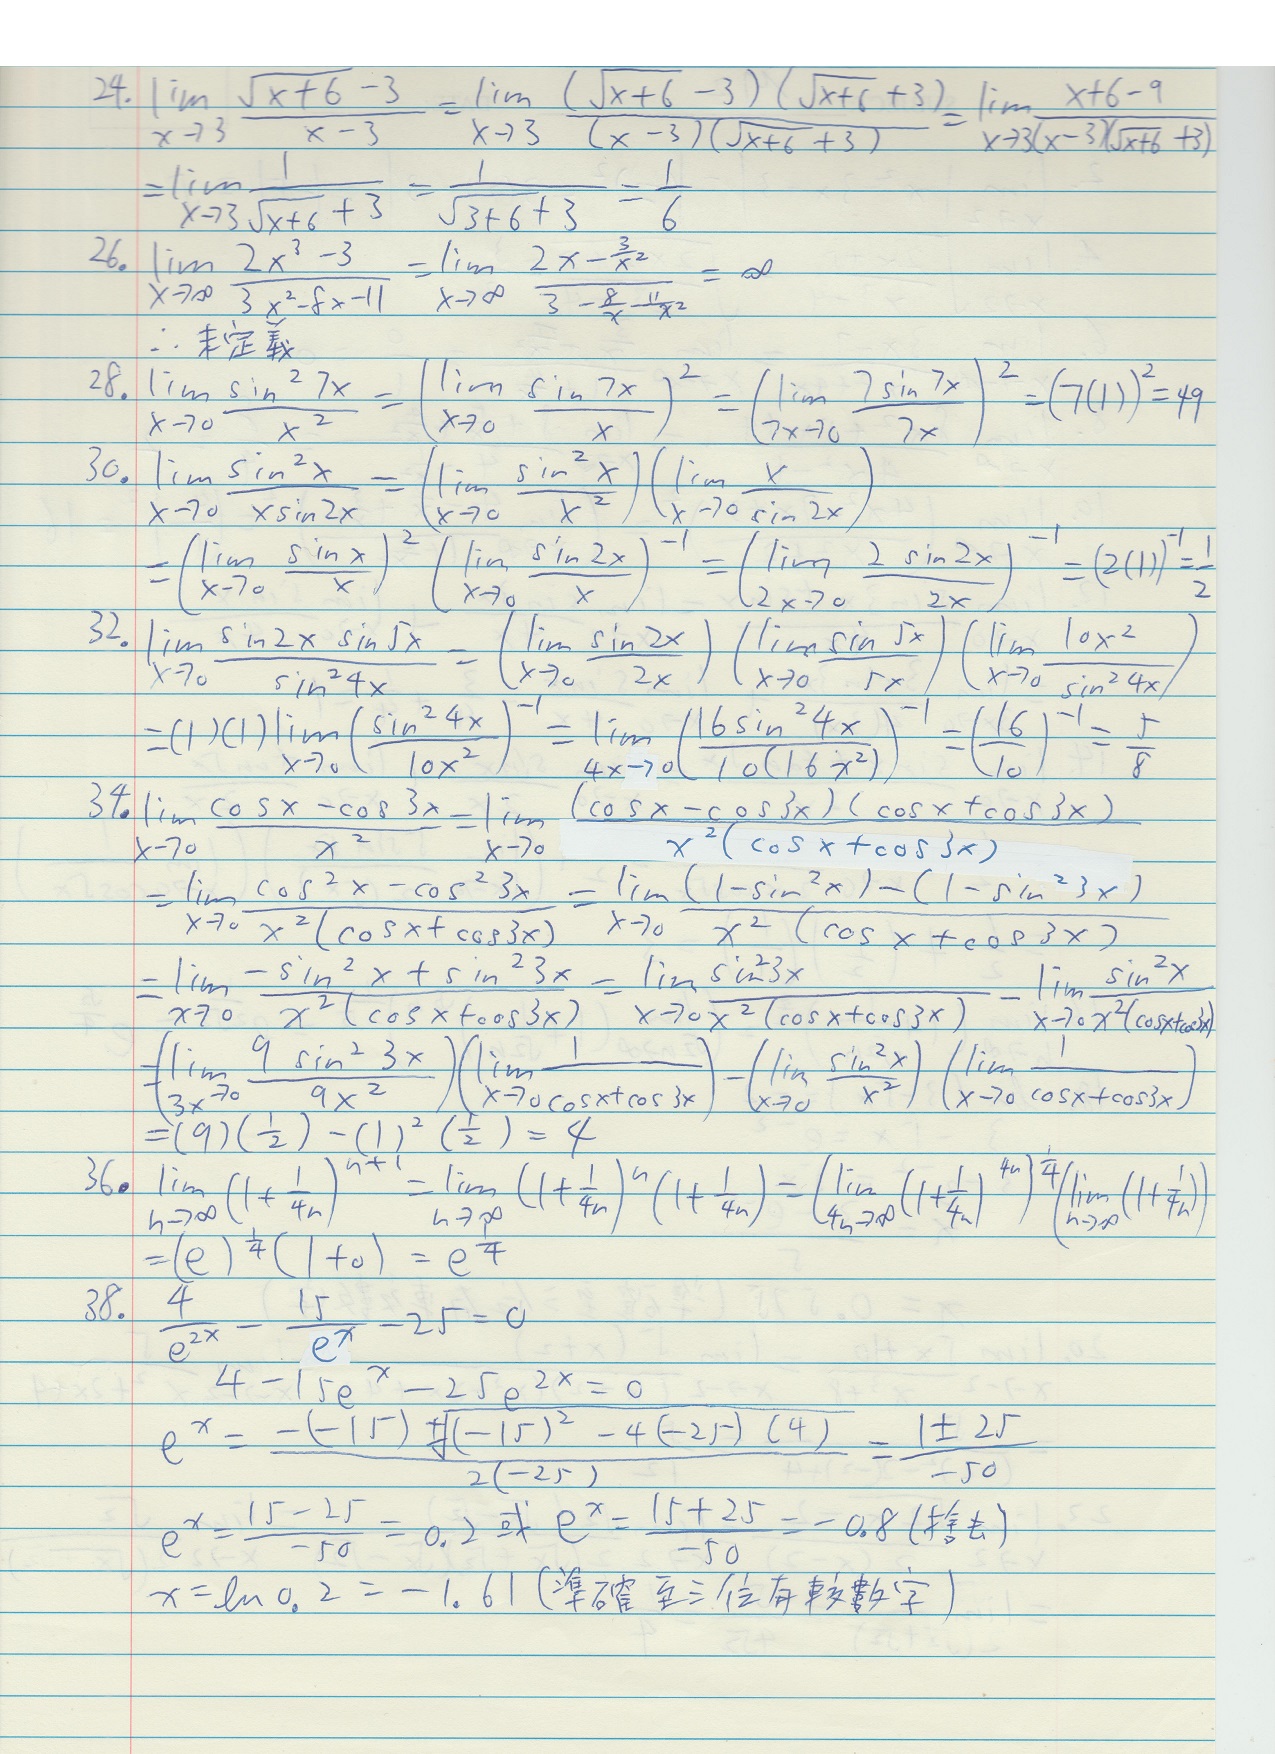 24. lim x→3 (√(x+6) -3)/(x-3) = lim x→3 ((√(x+6) -3)(√(x+6) +3))/((x-3)(√(x+6) +3)) = lim x→3 (x+6-9)/((x-3)(√(x+6) +3))
= lim x→3 1/(√(x+6) +3) = 1/(√(3+6) +3) = 1/6
26. lim x→∞ (2x³ -3)/(3x²-8x-11) = lim x→∞ (2x - 3/x²)/(3 - 8/x - 11/x²) = ∞
∴ 未定義
28. lim x→0 (sin² 7x)/x² = (lim x→0 (sin 7x)/x)² = (lim 7x→0 (7 sin 7x)/7x)² = (7(1))² = 49
30. lim x→0 (sin² x)/(x sin 2x) = (lim x→0 (sin² x)/x²)(lim x→0 x/(sin 2x))
= (lim x→0 (sin x)/x)² (lim x→0 (sin 2x)/x)⁻¹ = (lim 2x→0 (2 sin 2x)/2x)⁻¹ = (2(1))⁻¹ = 1/2
32. lim x→0 (sin 2x sin 5x)/(sin² 4x) = (lim x→0 (sin 2x)/2x)(lim x→0 (sin 5x)/5x)(lim x→0 10x²/(sin² 4x))
= (1)(1) lim x→0 ((sin² 4x)/10x²)⁻¹ = lim 4x→0 ((16 sin² 4x)/(10(16x²)))⁻¹ = (16/10)⁻¹ = 5/8
34. lim x→0 (cos x - cos 3x)/x² = lim x→0 ((cos x - cos 3x)(cos x + cos 3x))/(x²(cos x + cos 3x))
= lim x→0 (cos² x - cos² 3x)/(x²(cos x + cos 3x)) = lim x→0 ((1 - sin² x) - (1 - sin² 3x))/(x²(cos x + cos 3x))
= lim x→0 (-sin² x + sin² 3x)/(x²(cos x + cos 3x)) = lim x→0 (sin² 3x)/(x²(cos x + cos 3x)) - lim x→0 (sin² x)/(x²(cos x + cos 3x))
= (lim 3x→0 (9 sin² 3x)/9x²)(lim x→0 1/(cos x + cos 3x)) - (lim x→0 (sin² x)/x²)(lim x→0 1/(cos x + cos 3x))
= (9)(1/2) - (1)² (1/2) = 4
36. lim n→∞ (1 + 1/4n)^(n+1) = lim n→∞ (1 + 1/4n)^n (1 + 1/4n) = (lim 4n→∞ (1 + 1/4n)^(4n))^(1/4) (lim n→∞ (1 + 1/4n))
= (e)^(1/4) (1+0) = e^(1/4)
38. 4/e^(2x) - 15/e^x - 25 = 0
4 - 15e^x - 25e^(2x) = 0
e^x = (-(-15) ± √((-15)² - 4(-25)(4)))/(2(-25)) = (1 ± 25)/(-50)
e^x = (15-25)/(-50) = 0.2 或 e^x = (15+25)/(-50) = -0.8 (捨去)
x = ln 0.2 = -1.61 (準確至三位有效數字)